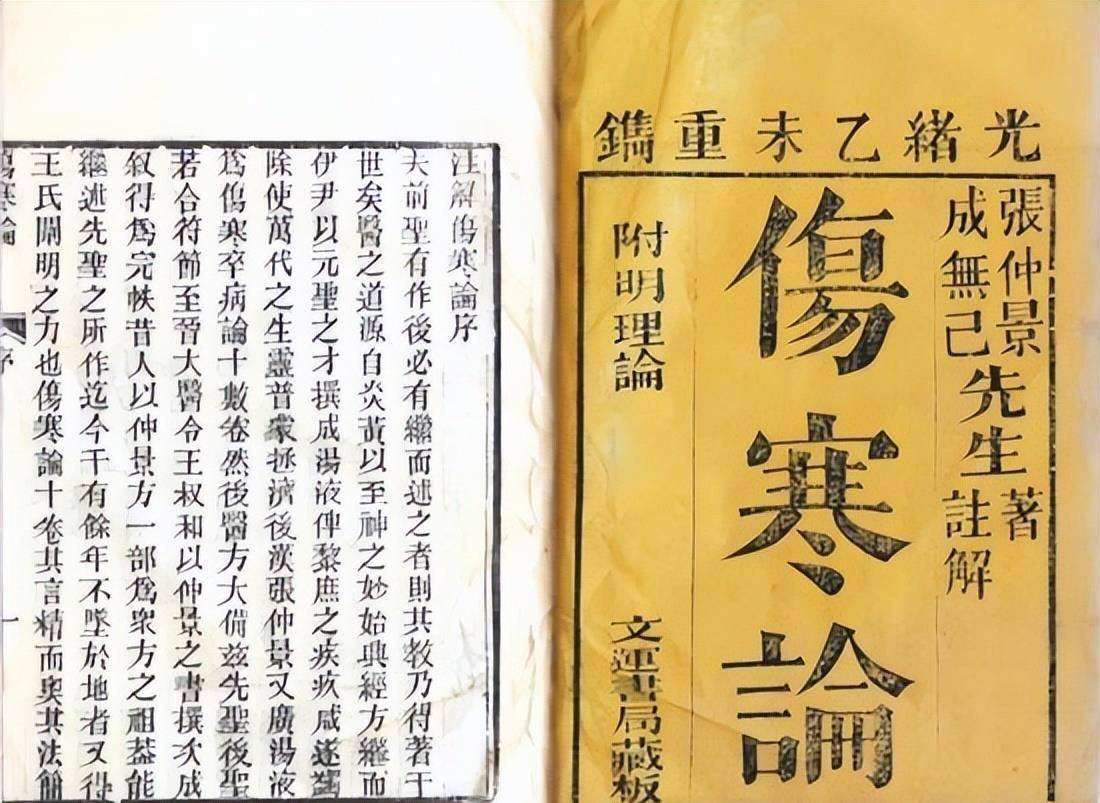 光緒乙未重鐫
張仲景
成無己
先生
著
註解
傷寒論
附明理論
文運書局藏板
注解傷寒論序
夫前聖有作後必有繼而述之者則其教乃得著于
世矣醫之道源自炎黃以至神之妙始興經方繼而
伊尹以元聖之才撰成湯液俾黎庶之疾疚咸遂蠲
除使萬代之生靈普蒙拯濟後漢張仲景又廣湯液
爲傷寒卒病論十數卷然後醫方大備兹先聖後聖
若合符節至晉大醫令王叔和以仲景之書撰次成
叙得爲完帙昔人以仲景方一部爲衆方之祖蓋能
繼述先聖之所作迄今千有餘年不墜於地者又得
王氏闡明之力也傷寒論十卷其言精而奥其法簡
傷寒論 序 一